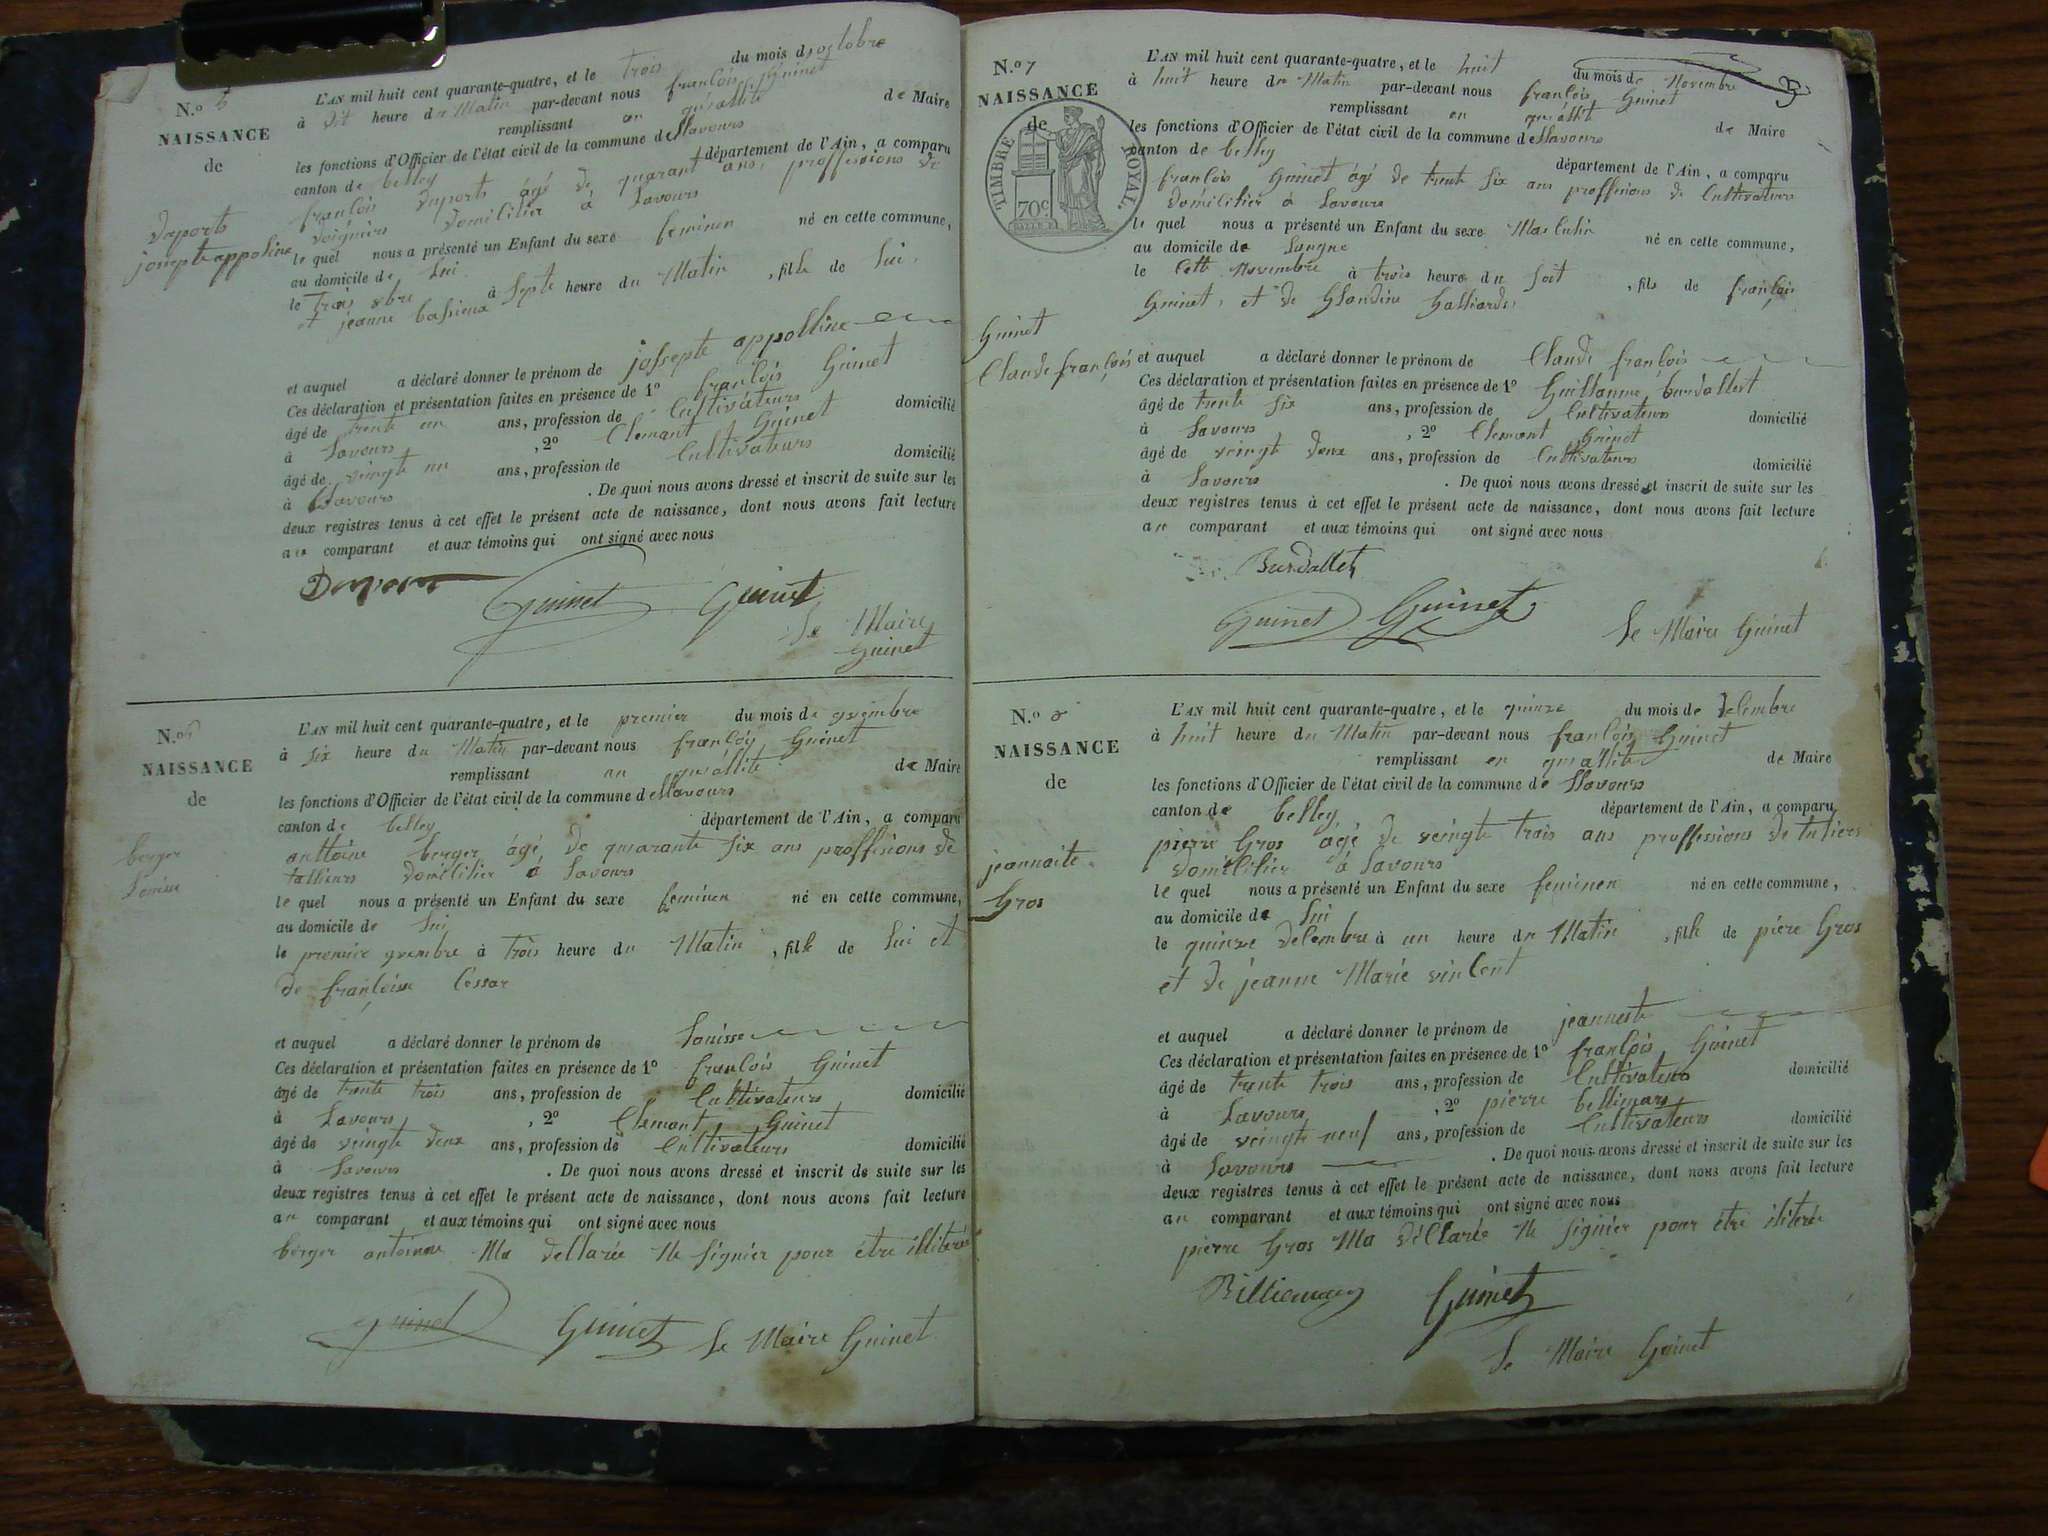 N.o 6
NAISSANCE
de
duports
josepte appoline
L'AN mil huit cent quarante-quatre, et le trois du mois d octobre
à dix heure du Matin par-devant nous françois Guinet
remplissant en quallité de Maire
les fonctions d'Officier de l'état civil de la commune de Slavours
canton de belley département de l'Ain, a comparu
françois duports âgé de quarant ans, proffesions de
domicilier à Savours
le quel nous a présenté un Enfant du sexe feminen né en cette commune,
au domicile de lui
le trois 8bre à septe heure du Matin , fille de lui,
et jeanne
et auquel a déclaré donner le prénom de jossepte appolline
Ces déclaration et présentation faites en présence de 1o françois Guinet
âgé de trente ans, profession de Cultivateurs domicilié
à Savours , 2o Clemant Guinet
âgé de veingte un ans, profession de Cultivateurs domicilié
à Slavours . De quoi nous avons dressé et inscrit de suite sur les
deux registres tenus à cet effet le présent acte de naissance, dont nous avons fait lecture
au comparant et aux témoins qui ont signé avec nous
Guinet Guinet
Le Maire
Guinet
N.o
NAISSANCE
de
berger
Louise
L'AN mil huit cent quarante-quatre, et le premier du mois de 9vembre
à six heure du Matin par-devant nous françois Guinet
remplissant en quallité de Maire
les fonctions d'Officier de l'état civil de la commune de Slavours
canton de belley département de l'Ain, a comparu
anttoine berger âgé de quarante six ans proffisions de
tallieurs domicilier à Savours
le quel nous a présenté un Enfant du sexe feminen né en cette commune,
au domicile de lui
le premier 9vembre à trois heure du Matin , fille de lui et
de françoise Cessar
et auquel a déclaré donner le prénom de Louisse
Ces déclaration et présentation faites en présence de 1o françois Guinet
âgé de trente trois ans, profession de Cultivateurs domicilié
à Savours , 2o Clemant Guinet
âgé de veingte deux ans, profession de Cultivateurs domicilié
à Savours . De quoi nous avons dressé et inscrit de suite sur les
deux registres tenus à cet effet le présent acte de naissance, dont nous avons fait lecture
au comparant et aux témoins qui ont signé avec nous
berger antoinne Ma dellarée Ne signier pour être illiteré
Guinet Guinet Le Maire Guinet
N.o 7
NAISSANCE
de
TIMBRE ROYAL.
70c
Guinet
Claude françois
L'AN mil huit cent quarante-quatre, et le huit du mois de Novembre
à huit heure du Matin par-devant nous françois Guinet
remplissant en quallité de Maire
les fonctions d'Officier de l'état civil de la commune de Slavours
canton de belley département de l'Ain, a comparu
françois Guinet âgé de trente six ans proffesions de Cultivateurs
domicilier à Savours
le quel nous a présenté un Enfant du sexe Masculin né en cette commune,
au domicile de
le Novembre à trois heure du soit , fils de françois
Guinet, et de
et auquel a déclaré donner le prénom de Claude françois
Ces déclaration et présentation faites en présence de 1o Guillaume burdallet
âgé de trente six ans, profession de Cultivateurs domicilié
à Savours , 2o Clemant Guinet
âgé de veingt deux ans, profession de Cultivateurs domicilié
à Savours . De quoi nous avons dressé et inscrit de suite sur les
deux registres tenus à cet effet le présent acte de naissance, dont nous avons fait lecture
au comparant et aux témoins qui ont signé avec nous
Burdallet
Guinet Guinet
Le Maire Guinet
N.o 8
NAISSANCE
de
jeannaite
Gros
L'AN mil huit cent quarante-quatre, et le quinze du mois de decembre
à huit heure du Matin par-devant nous françois Guinet
remplissant en quallité de Maire
les fonctions d'Officier de l'état civil de la commune de Slavours
canton de belley département de l'Ain, a comparu
pierre Gros âgé de veingte trois ans proffessions de
domicilier à Savours
le quel nous a présenté un Enfant du sexe feminen né en cette commune,
au domicile de lui
le quinze décembre à un heure du Matin , fille de piere Gros
et de jeanne Marie vincent
et auquel a déclaré donner le prénom de jeanneste
Ces déclaration et présentation faites en présence de 1o françois Guinet
âgé de trente trois ans, profession de Cultivateurs domicilié
à Savours , 2o pierre
âgé de veingte neuf ans, profession de Cultivateurs domicilié
à Savours . De quoi nous avons dressé et inscrit de suite sur les
deux registres tenus à cet effet le présent acte de naissance, dont nous avons fait lecture
au comparant et aux témoins qui ont signé avec nous
pierre Gros Ma déclarée Ne signier pour être iliterée
Guinet
Le Maire Guinet